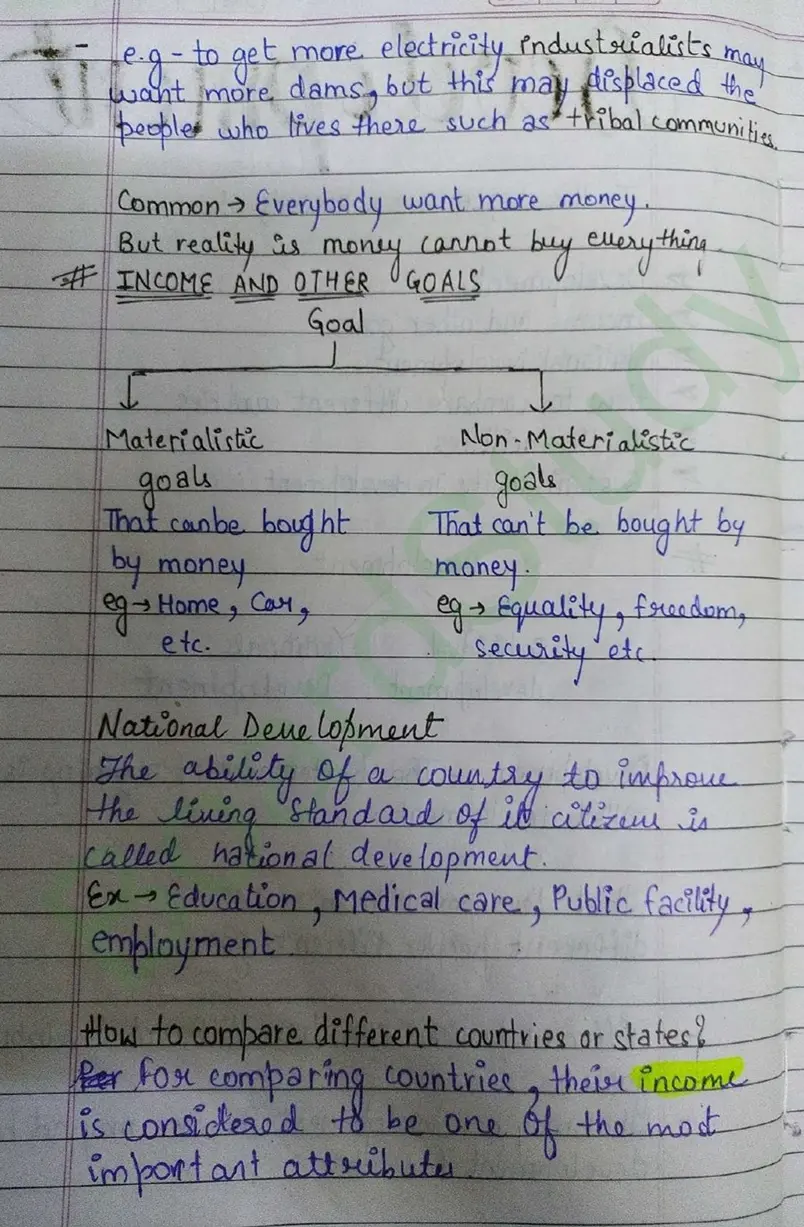 - e.g - to get more electricity industrialists may
want more dams, but this may displaced the
people who lives there such as tribal communities.
Common → Everybody want more money.
But reality is money cannot buy everything
# INCOME AND OTHER GOALS
Goal
Materialistic goals
That can be bought
by money
eg → Home, Car,
etc.
Non-Materialistic
goals
That can't be bought by
money.
eg → Equality, freedom,
security etc.
National Development
The ability of a country to improve
the living standard of it citizens is
called national development.
Ex → Education, Medical care, Public facility,
employment
How to compare different countries or states?
for comparing countries, their income
is considered to be one of the most
important attributes.